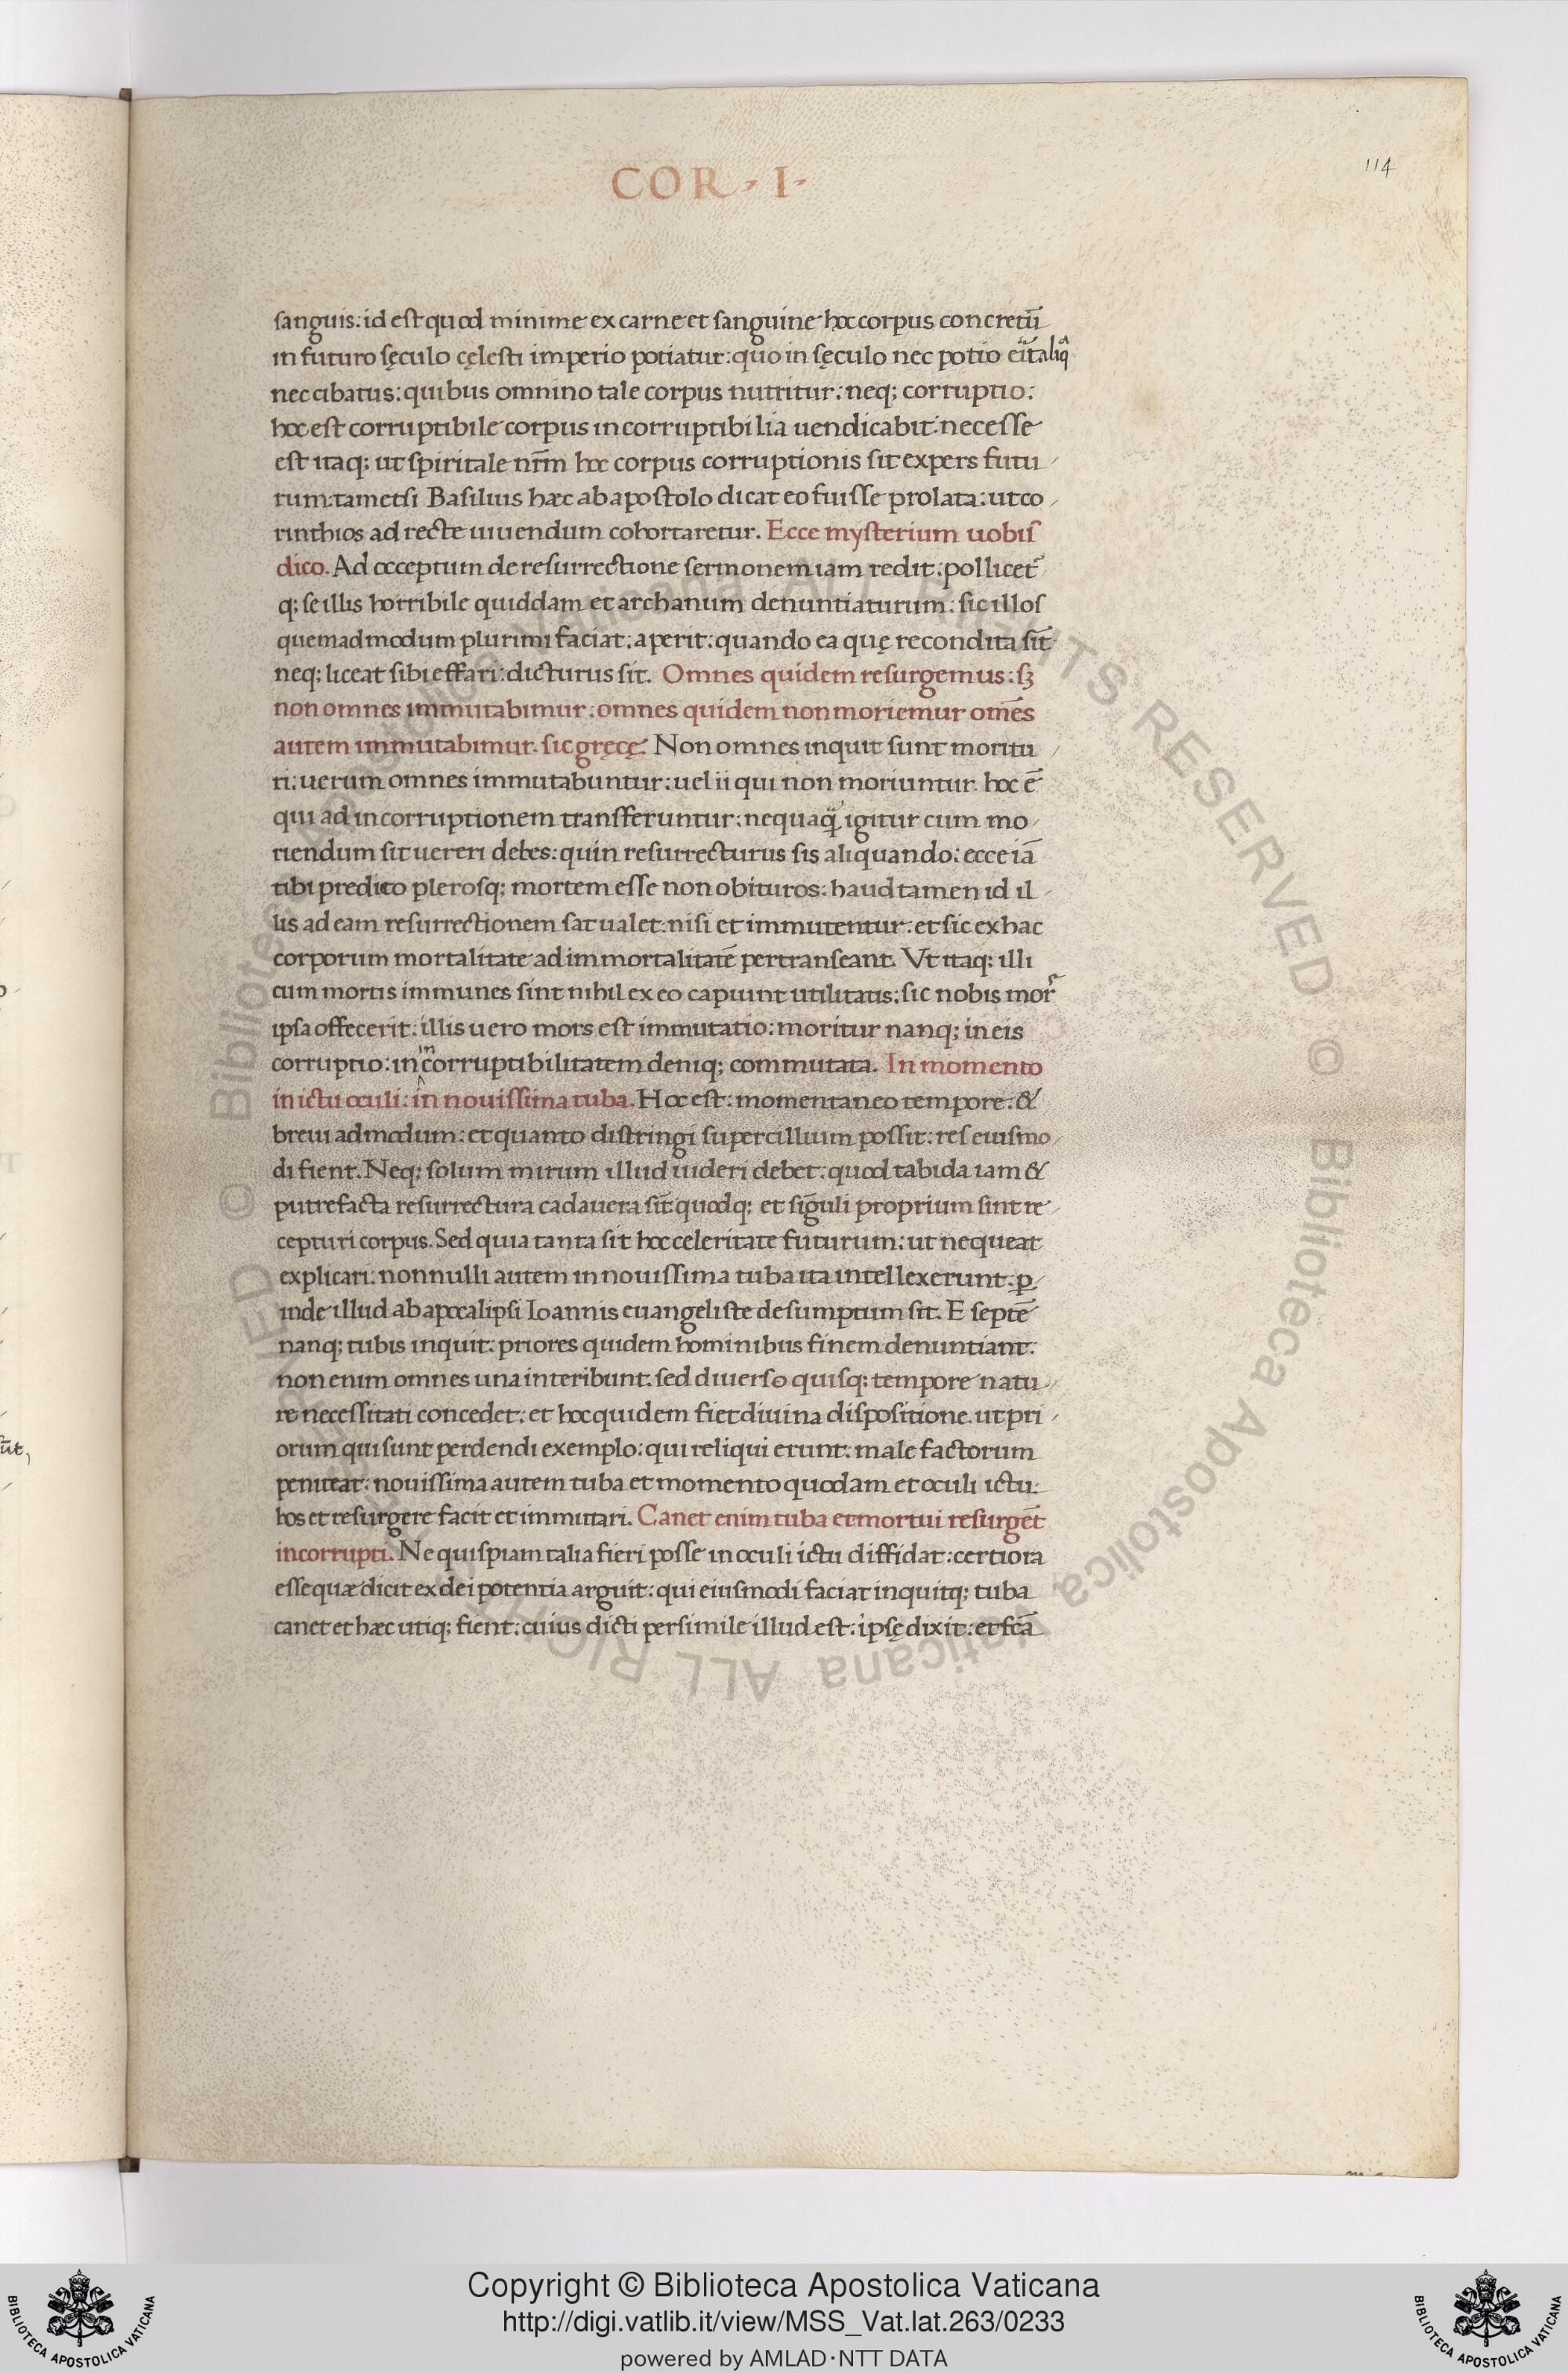 COR · I ·
114
sanguis: id est quod minime ex carne et sanguine hoc corpus concretū
in futuro sęculo cęlesti imperio potiatur: quo in sęculo nec potio
nec cibatus: quibus omnino tale corpus nutritur: neq; corruptio:
hoc est corruptibile corpus incorruptibilia uendicabit: necesse
est itaq; ut spiritale nr̄m hoc corpus corruptionis sit expers futu
rum: tametsi Basilius hæc ab apostolo dicat eo fuisse prolata: ut co
rinthios ad recte uiuendum cohortaretur. Ecce mysterium uobis
dico. Ad occeptum de resurrectione sermonem iam redit: pollicet᷑
q; se illis horribile quiddam et archanum denuntiaturum: sic illos
quemadmodum plurimi faciat: aperit: quando ea quę recondita sīt
neq; liceat sibi effari: dicturus sit. Omnes quidem resurgemus: sꝫ
non omnes immutabimur: omnes quidem non moriemur om̄es
autem immutabimur. sic gręcę. Non omnes inquit sunt moritu
ri: uerum omnes immutabuntur: uel ii qui non moriuntur. hoc ē
qui ad incorruptionem transferuntur: nequaq̃ igitur cum mo
riendum sit uereri debes: quin resurrecturus sis aliquando: ecce iā
tibi predico plerosq; mortem esse non obituros: haud tamen id il
lis ad eam resurrectionem sat ualet: nisi et immutentur: et sic ex hac
corporum mortalitate ad immortalitatē pertranseant. Vt itaq; illi
cum mortis immunes sint nihil ex eo capiunt utilitatis: sic nobis mor᷑
ipsa offecerit: illis uero mors est immutatio: moritur nanq; in eis
corruptio: in incorruptibilitatem deniq; commutata. In momento
in ictu oculi: in nouissima tuba. Hoc est: momentaneo tempore: &
breui admodum: et quanto distringi supercillium possit: res eiusmo
di fient. Neq; solum mirum illud uideri debet: quod tabida iam &
putrefacta resurrectura cadauera sīt: quodq; et sīguli proprium sint re
cepturi corpus. Sed quia tanta sit hoc celeritate futurum: ut nequeat
explicari: nonnulli autem in nouissima tuba ita intellexerunt: ꝑ
inde illud ab apocalipsi Ioannis euangeliste desumptum sit. E septē
nanq; tubis inquit: priores quidem hominibus finem denuntiant:
non enim omnes una interibunt. sed diuerso quisq; tempore natu
re necessitati concedet: et hoc quidem fiet diuina dispositione. ut pri
orum qui sunt perdendi exemplo: qui reliqui erunt: male factorum
peniteat: nouissima autem tuba et momento quodam et oculi ictu:
hos et resurgere facit et immutari. Canet enim tuba et mortui resurgēt
incorrupti. Ne quispiam talia fieri posse in oculi ictu diffidat: certiora
esse quæ dicit ex dei potentia arguit: qui eiusmodi faciat inquitq; tuba
canet et hæc utiq; fient: cuius dicti persimile illud est: ipsę dixit: et fcā
Copyright © Biblioteca Apostolica Vaticana
http://digi.vatlib.it/view/MSS_Vat.lat.263/0233
powered by AMLAD·NTT DATA